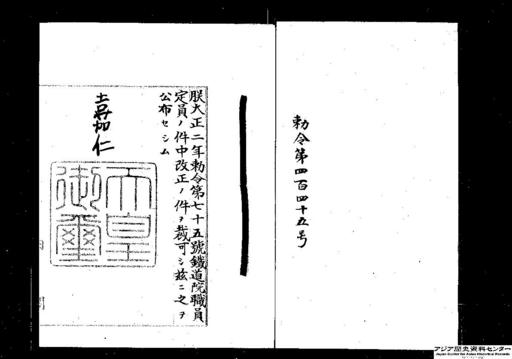 勅令第四百四十五号
朕大正二年勅令第七十五號鐵道院職員
定員ノ件中改正ノ件ヲ裁可シ茲ニ之ヲ
公布セシム
嘉仁
天皇
御璽
アジア歴史資料センター
Japan Center for Asian Historical Records